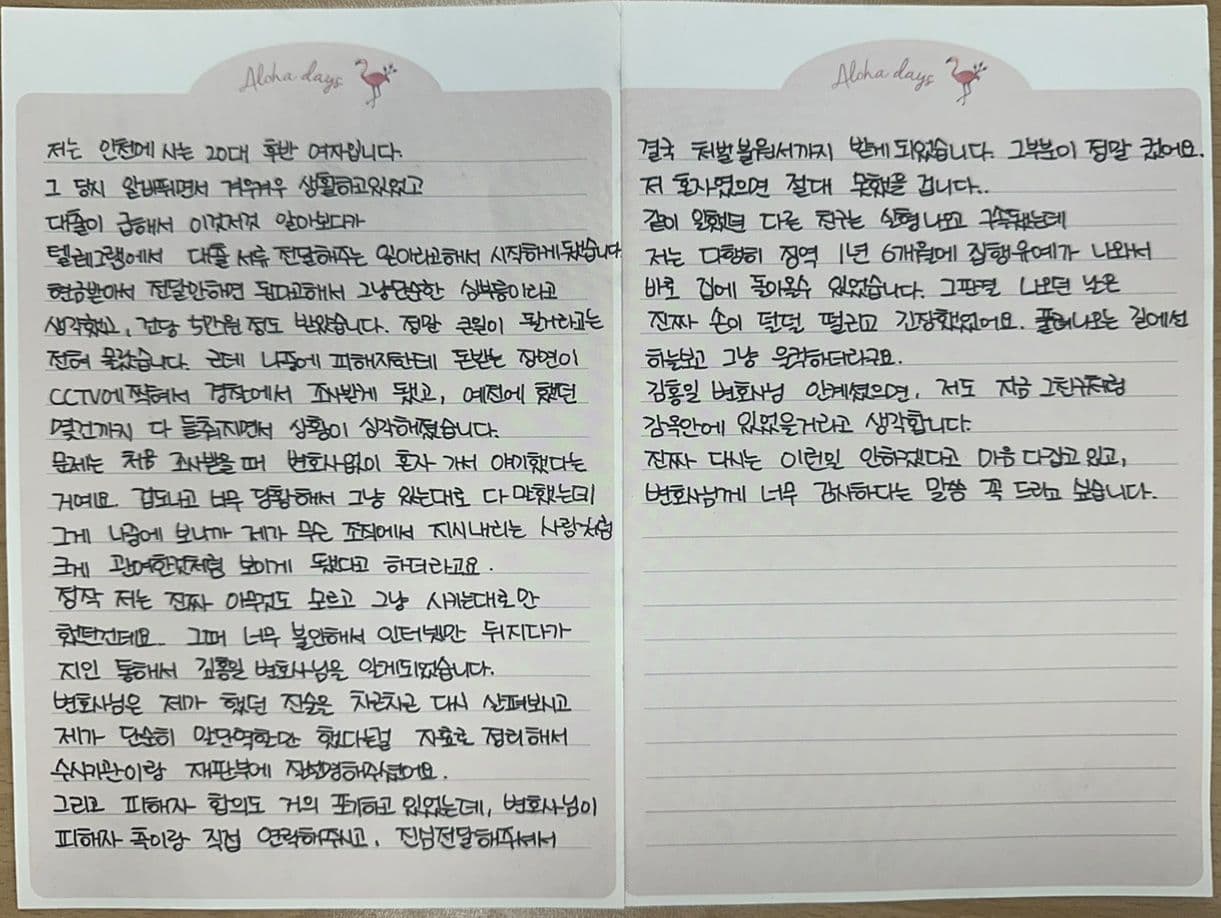 Aloha days
저는 인천에 사는 20대 후반 여자입니다.
그 당시 알바뛰면서 겨우겨우 생활하고있었고
대출이 급해서 이것저것 알아보다가
텔레그램에서 대출 서류 전달해주는 일이라고해서 시작하게됐습니다
현금받아서 전달만하면 된다고해서 그냥단순한 심부름이라고
생각했고, 건당 5만원 정도 받았습니다. 정말 큰일이 될거라고는
전혀 몰랐습니다. 근데 나중에 피해자한테 돈받는 장면이
CCTV에 찍혀서 경찰에서 조사받게 됐고, 예전에 했던
몇건까지 다 들춰지면서 상황이 심각해졌습니다.
문제는 처음 조사받을 때 변호사없이 혼자 가서 얘기했다는
거예요. 겁도나고 너무 당황해서 그냥 있는대로 다 말했는데
그게 나중에 보니까 제가 무슨 조직에서 지시내리는 사람처럼
크게 관여한것처럼 보이게 됐다고 하더라고요.
정작 저는 진짜 아무것도 모르고 그냥 시키는대로만
했던건데요.. 그때 너무 불안해서 인터넷만 뒤지다가
지인 통해서 김홍일 변호사님을 알게되었습니다.
변호사님은 제가 했던 진술은 차근차근 다시 살펴보시고
제가 단순히 말단역할만 했다는걸 자료로 정리해서
수사기관이랑 재판부에 잘설명해주셨어요.
그리고 피해자 합의도 거의 포기하고 있었는데, 변호사님이
피해자 쪽이랑 직접 연락해주시고, 진심전달해주셔서
Aloha days
결국 처벌불원서까지 받게 되었습니다. 그부분이 정말 컸어요.
저 혼자였으면 절대 못했을 겁니다..
같이 일했던 다른 친구는 실형나오고 구속됐는데
저는 다행히 징역 1년 6개월에 집행유예가 나와서
바로 집에 돌아올수 있었습니다. 그판결 나오던 날은
진짜 손이 덜덜 떨리고 긴장했었어요. 풀려나오는 길에선
하늘보고 그냥 울컥하더라구요.
김홍일 변호사님 안계셨으면, 저도 지금 그친구처럼
감옥안에 있었을거라고 생각합니다.
진짜 다시는 이런일 안하겠다고 마음 다잡고 있고,
변호사님께 너무 감사하다는 말씀 꼭 드리고 싶습니다.